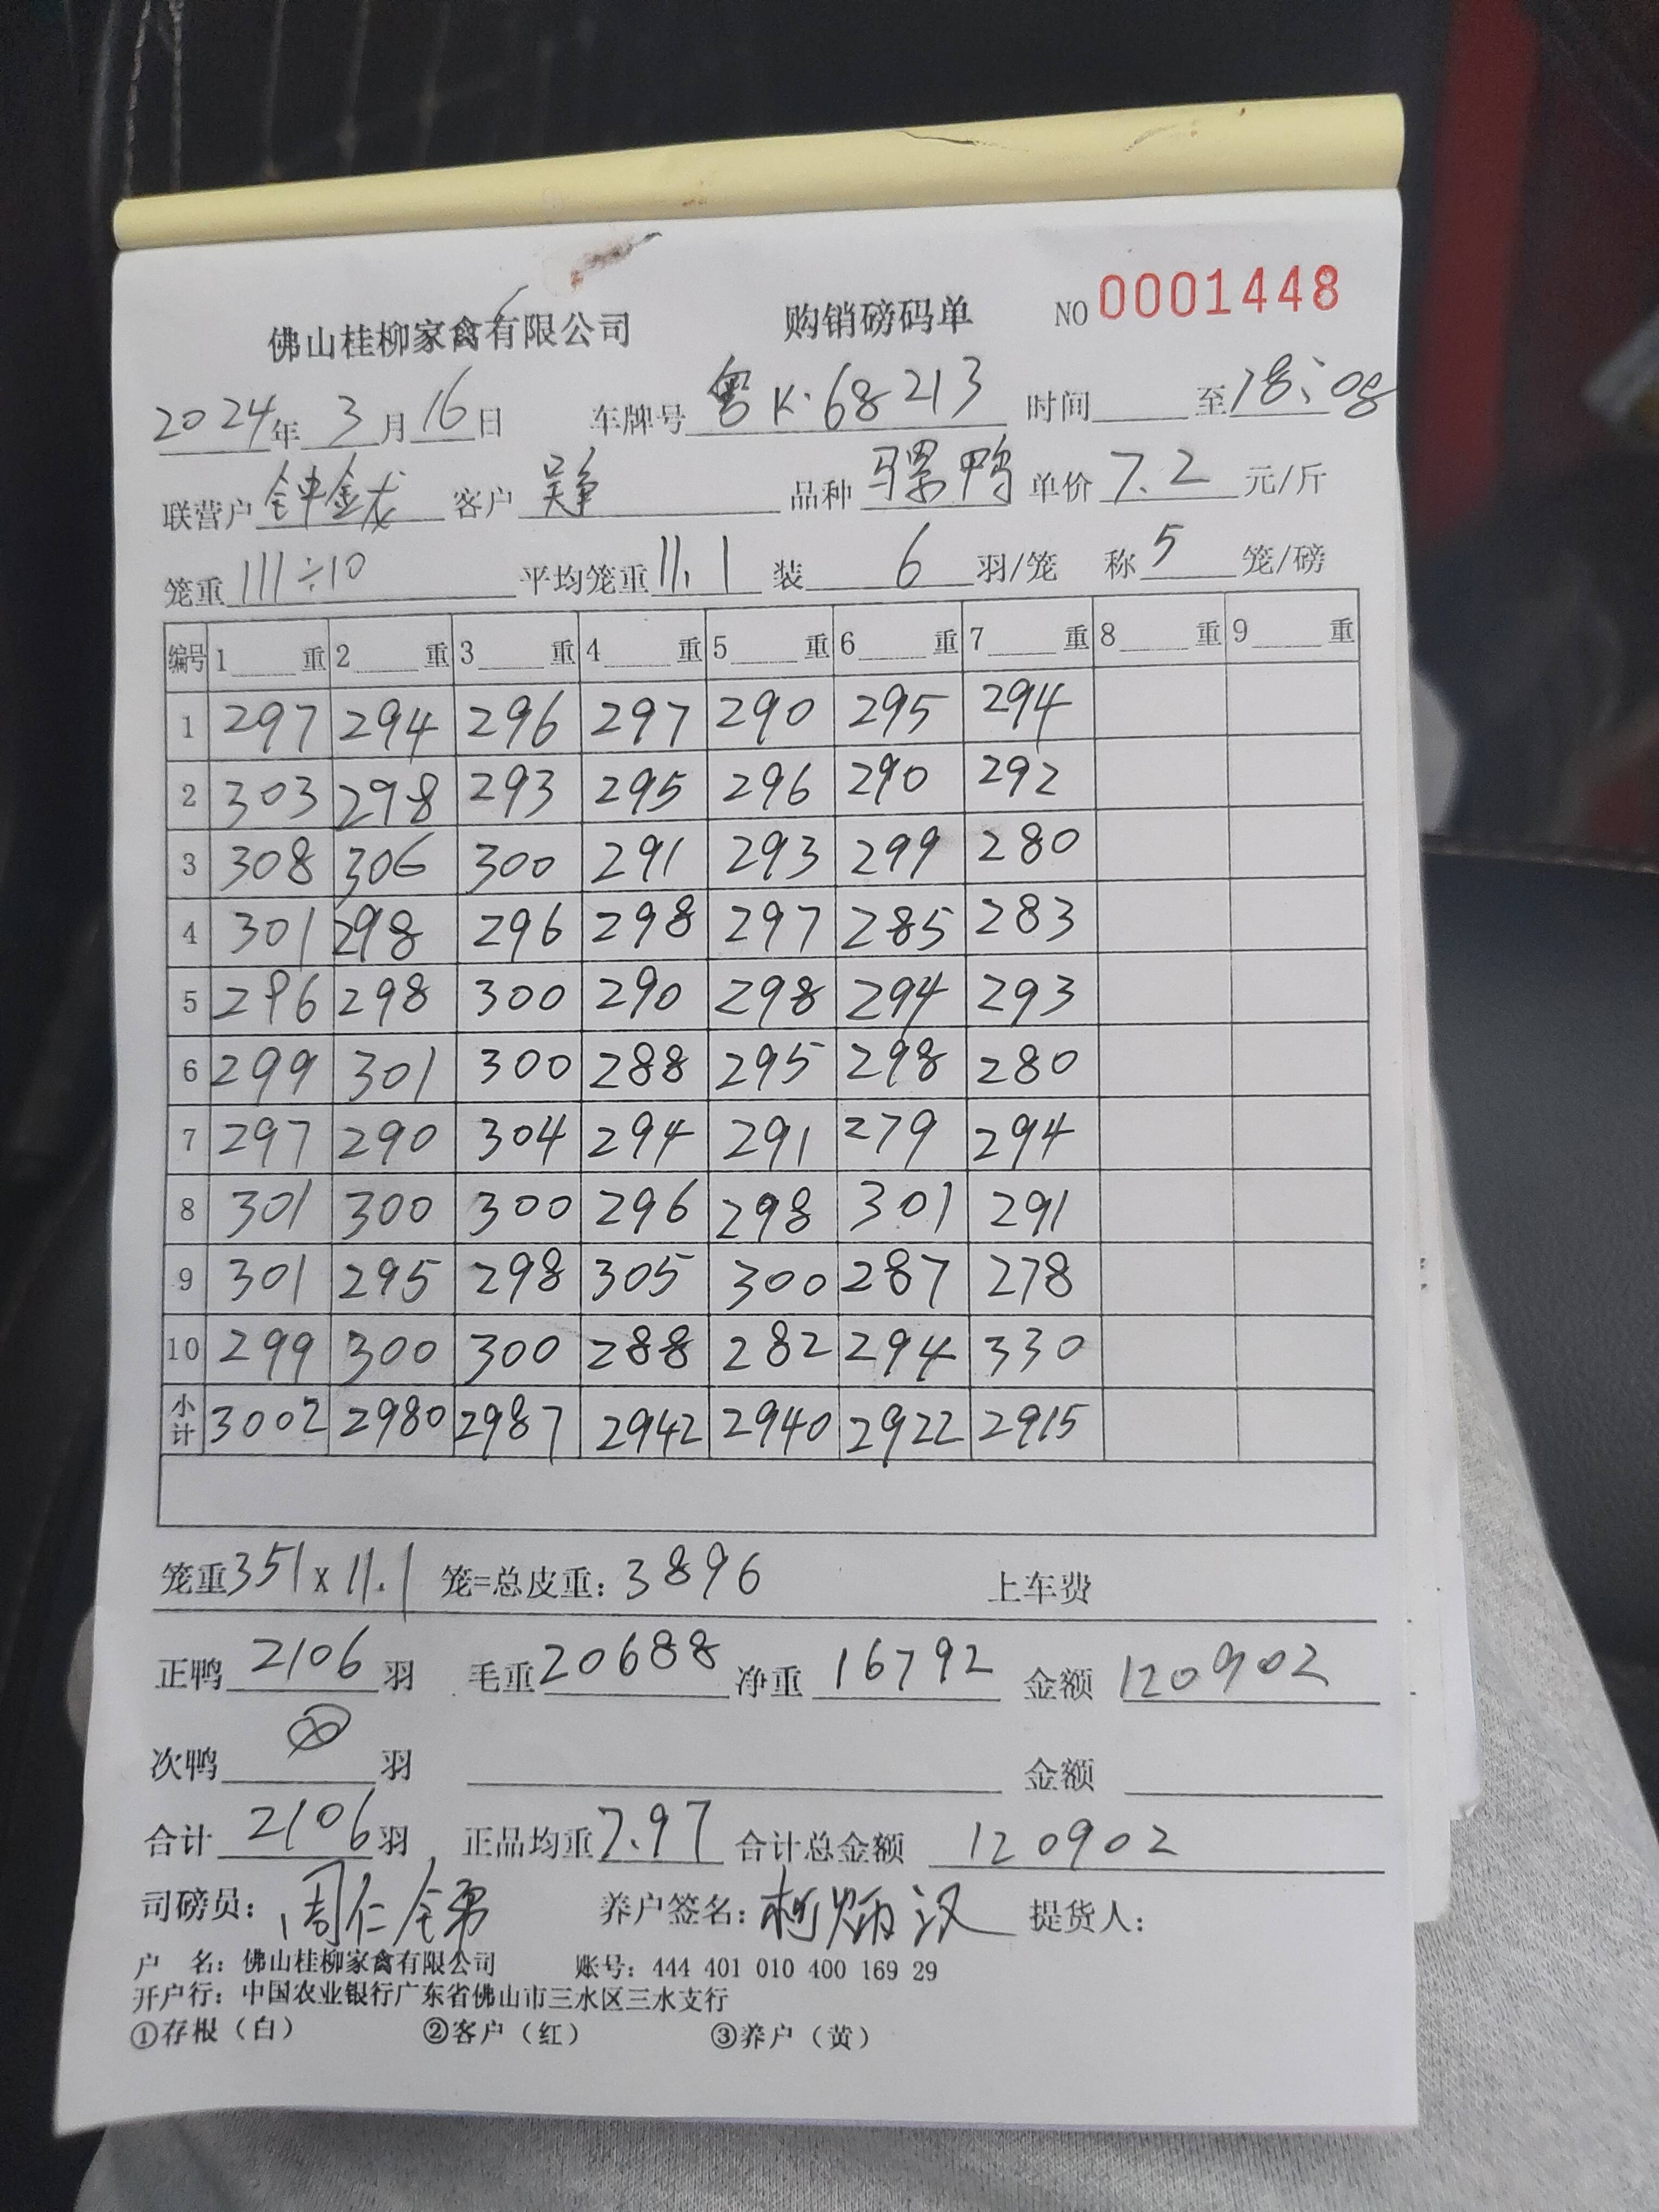 佛山桂柳家禽有限公司 购销磅码单 NO 0001448
2024年 3月16日 车牌号 粤K·68213 时间 至18:08
联营户 钟金龙 客户 吴争 品种 骡鸭 单价 7.2 元/斤
笼重 111÷10 平均笼重 11.1 装 6 羽/笼 称 5 笼/磅
编号 1 重 2 重 3 重 4 重 5 重 6 重 7 重 8 重 9 重
1 297 294 296 297 290 295 294
2 303 298 293 295 296 290 292
3 308 306 300 291 293 299 280
4 301 298 296 298 297 285 283
5 296 298 300 290 298 294 293
6 299 301 300 288 295 298 280
7 297 290 304 294 291 279 294
8 301 300 300 296 298 301 291
9 301 295 298 305 300 287 278
10 299 300 300 288 282 294 330
小计 3002 2980 2987 2942 2940 2922 2915
笼重 351 x 11.1 笼=总皮重: 3896 上车费
正鸭 2106 羽 毛重 20688 净重 16792 金额 120902
次鸭 羽 金额
合计 2106 羽 正品均重 7.97 合计总金额 120902
司磅员: 周仁 养户签名: 柯炳汉 提货人:
户 名: 佛山桂柳家禽有限公司 账号: 444 401 010 400 169 29
开户行: 中国农业银行广东省佛山市三水区三水支行
①存根(白) ②客户(红) ③养户(黄)